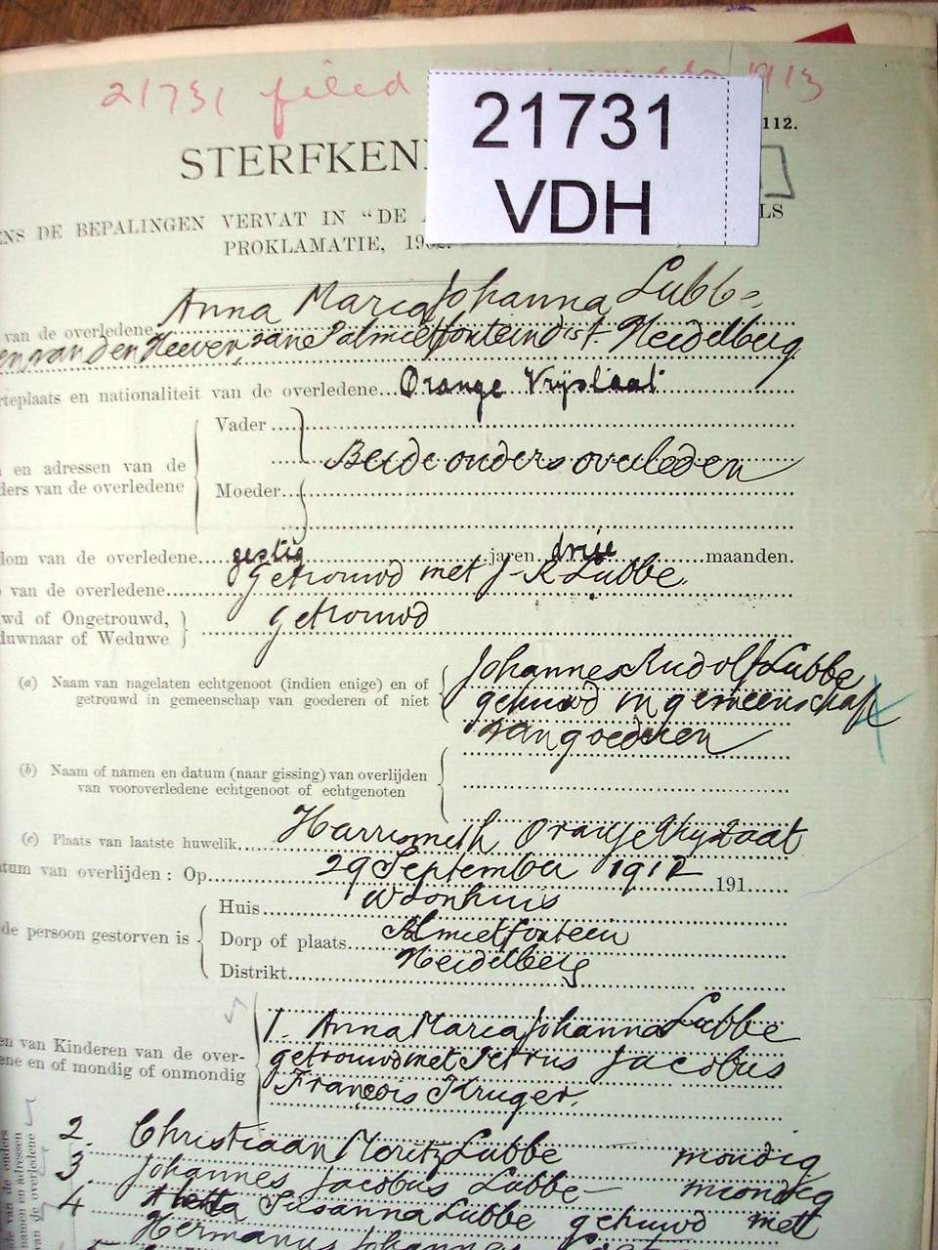 21731 filed 1913
21731
VDH
112.
STERFKEN
ENS DE BEPALINGEN VERVAT IN "DE
LS
PROKLAMATIE, 190
Anna Maria Johanna Lubbe
van de overledene
van den Heever, van Palmietfontein dist. Heidelberg
rteplaats en nationaliteit van de overledene Orange Vrijstaat
Vader
en adressen van de
ders van de overledene
Beide ouders overleden
Moeder
dom van de overledene gestig jaren drie maanden.
van de overledene Getrouwd met J. R. Lubbe
wd of Ongetrouwd,
duwnaar of Weduwe
Getrouwd
(a) Naam van nagelaten echtgenoot (indien enige) en of
getrouwd in gemeenschap van goederen of niet
Johannes Rudolf Lubbe
gehuwd in gemeenschap
van goederen
(b) Naam of namen en datum (naar gissing) van overlijden
van vooroverledene echtgenoot of echtgenoten
(c) Plaats van laatste huwelik Harrismith Oranje Vrystaat
atum van overlijden: Op 29 September 1912 191
Huis woonhuis
de persoon gestorven is
Dorp of plaats Palmietfontein
Distrikt Heidelberg
en van Kinderen van de over-
ene en of mondig of onmondig
1. Anna Maria Johanna Lubbe
getrouwd met Petrus Jacobus
François Kruger.
2. Christiaan Moritz Lubbe mondig
3 Johannes Jacobus Lubbe – mondig
4 Aletta Susanna Lubbe gehuwd met
Hermanus Johannes